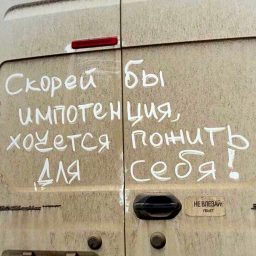 Скорей бы
импотенция,
хочется пожить
для себя!
НЕ ВЛЕЗАЙ!